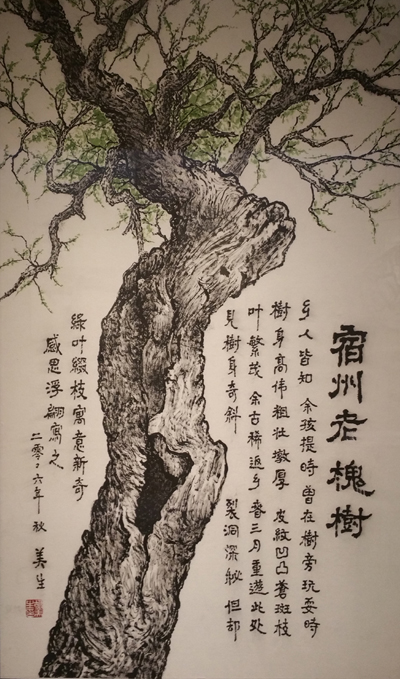 宿州老槐樹
乡人皆知 余孩提時曾在樹旁玩耍時
樹身高伟粗壮墩厚 皮紋凹凸蒼斑枝
叶繁茂 余古稀返乡 春三月重遊此处
見樹身奇斜 裂洞深祕 但却
綠叶綴枝寓意新奇
感思浮翩寫之
二零〃六年 秋 美生